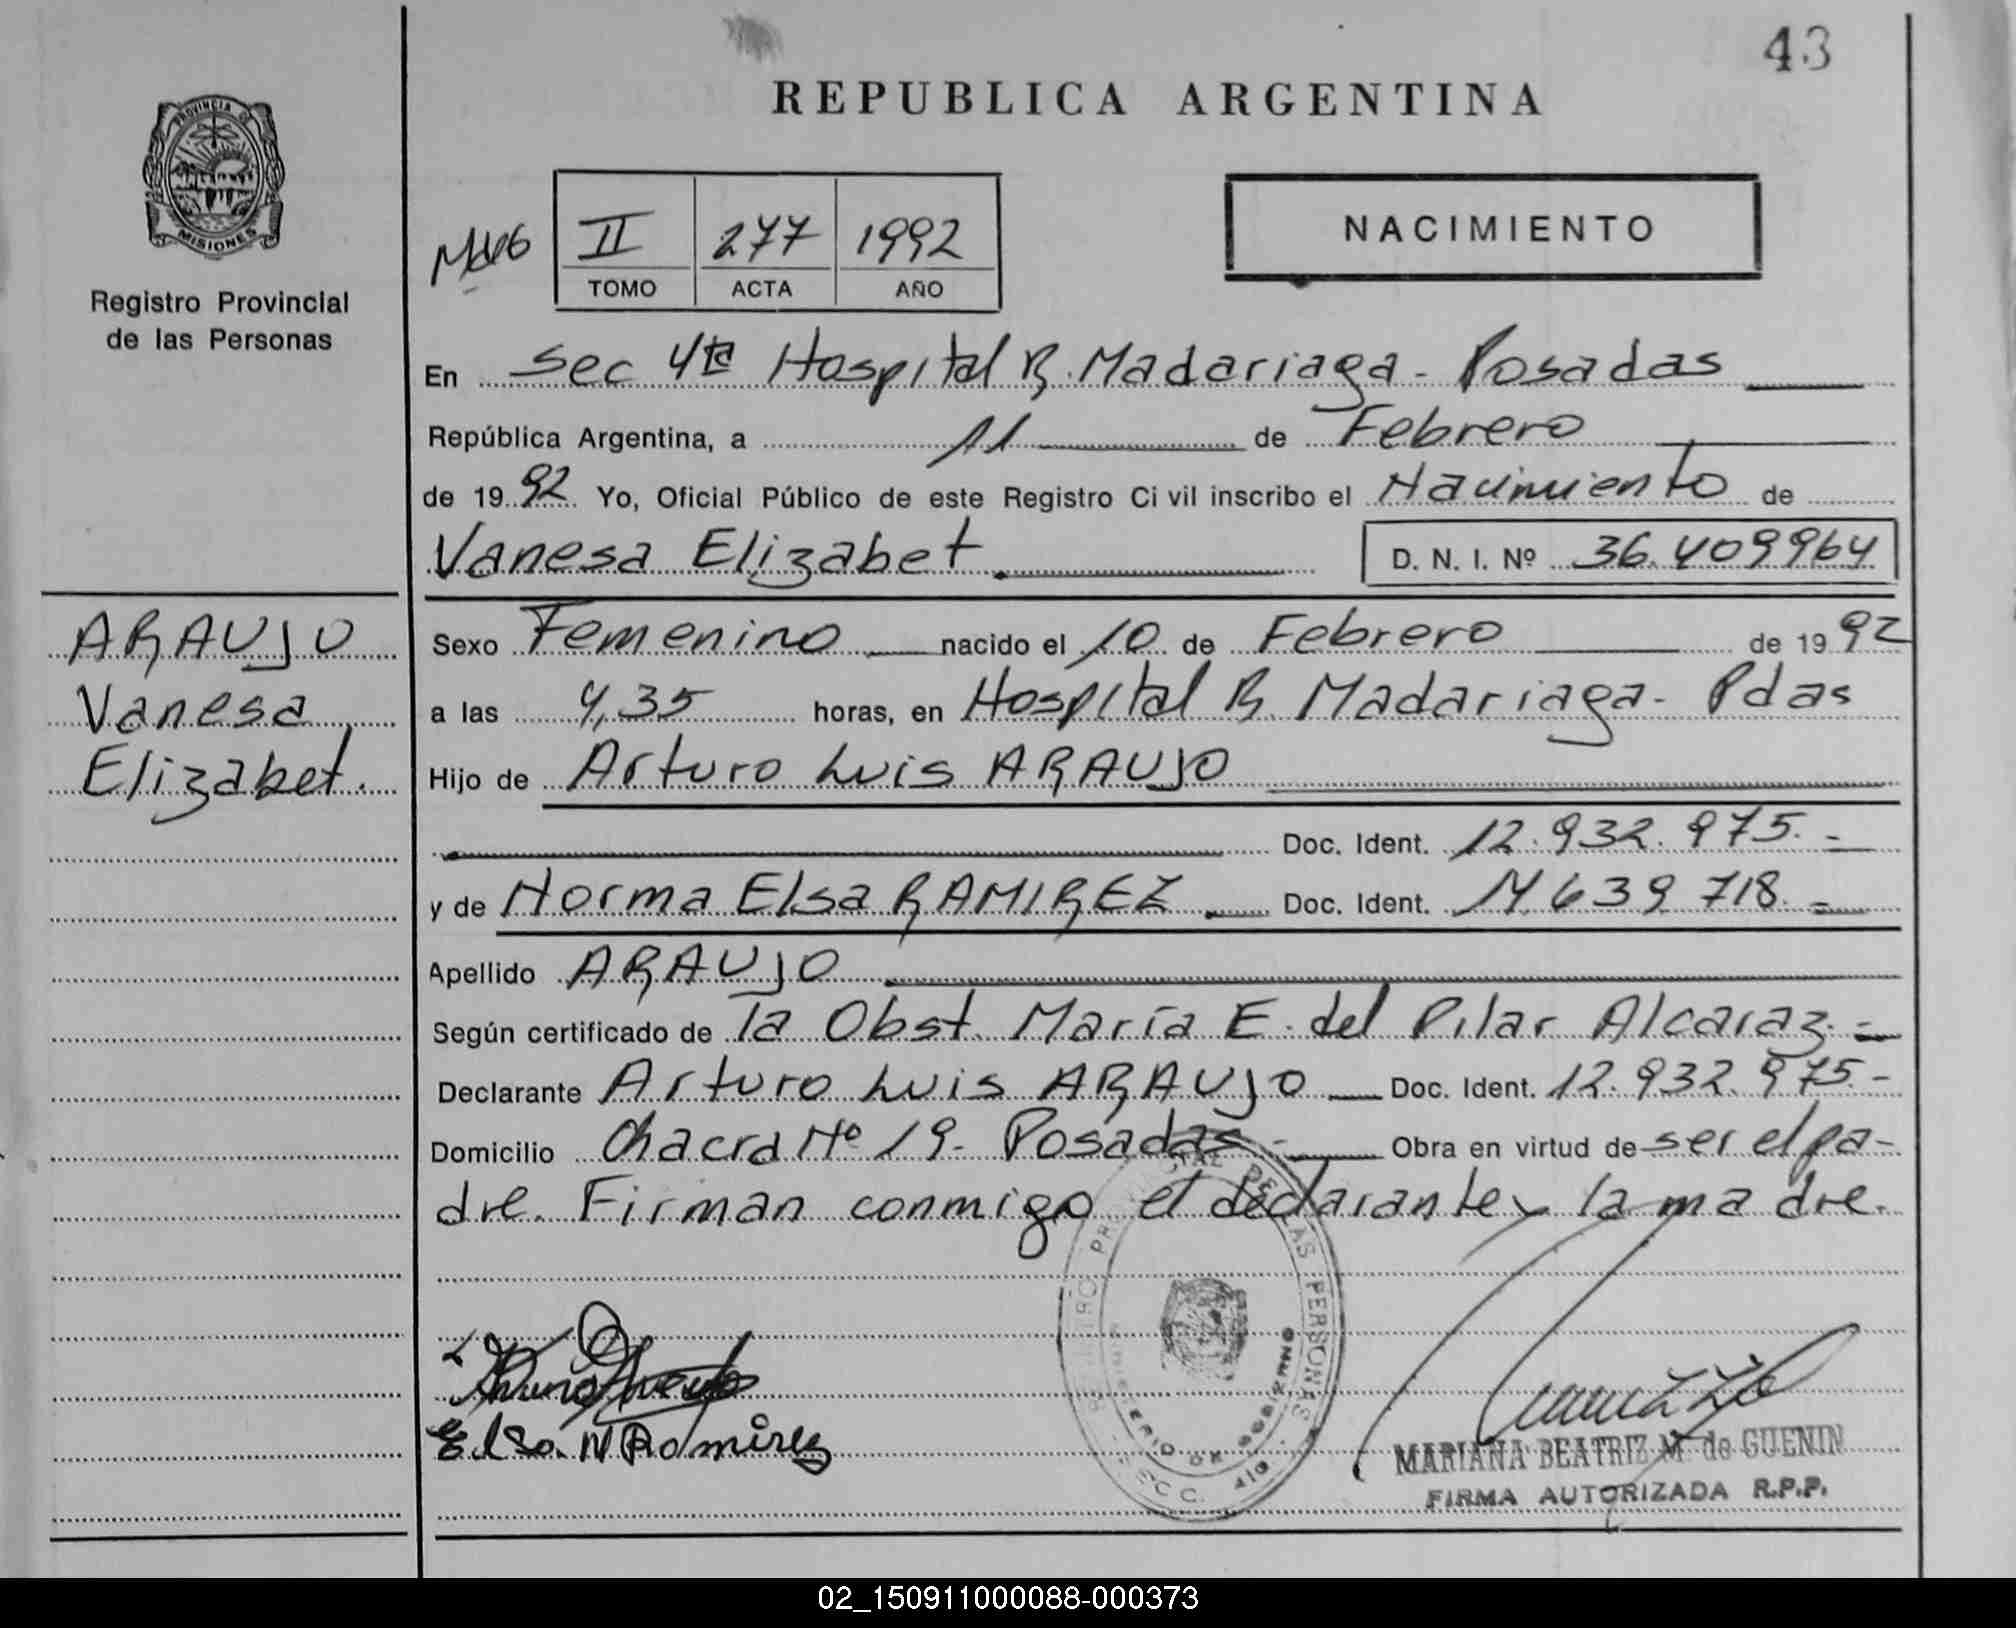 43
REPUBLICA ARGENTINA
PROVINCIA DE
MISIONES
Registro Provincial
de las Personas
II 277 1992
TOMO ACTA AÑO
NACIMIENTO
En Sec 4ta Hospital R. Madariaga - Posadas
República Argentina, a 11 de Febrero
de 1992 Yo, Oficial Público de este Registro Civil inscribo el Nacimiento de
Vanesa Elizabet. D. N. I. Nº 36.409964
ARAUJO
Vanesa
Elizabet.
Sexo Femenino nacido el 10 de Febrero de 1992
a las 4,35 horas, en Hospital R. Madariaga - Pdas
Hijo de Arturo Luis ARAUJO
Doc. Ident. 12.932.975.-
y de Norma Elsa RAMIREZ Doc. Ident. 14.639.718.-
Apellido ARAUJO
Según certificado de la Obst. María E. del Pilar Alcaraz.-
Declarante Arturo Luis ARAUJO Doc. Ident. 12.932.975.-
Domicilio Chacra Nº 19.- Posadas.- Obra en virtud de ser el pa-
dre. Firman conmigo el declarante y la madre.
Elsa. N Ramirez
MARIANA BEATRIZ M. de GUENIN
FIRMA AUTORIZADA R.P.P.
02_150911000088-000373